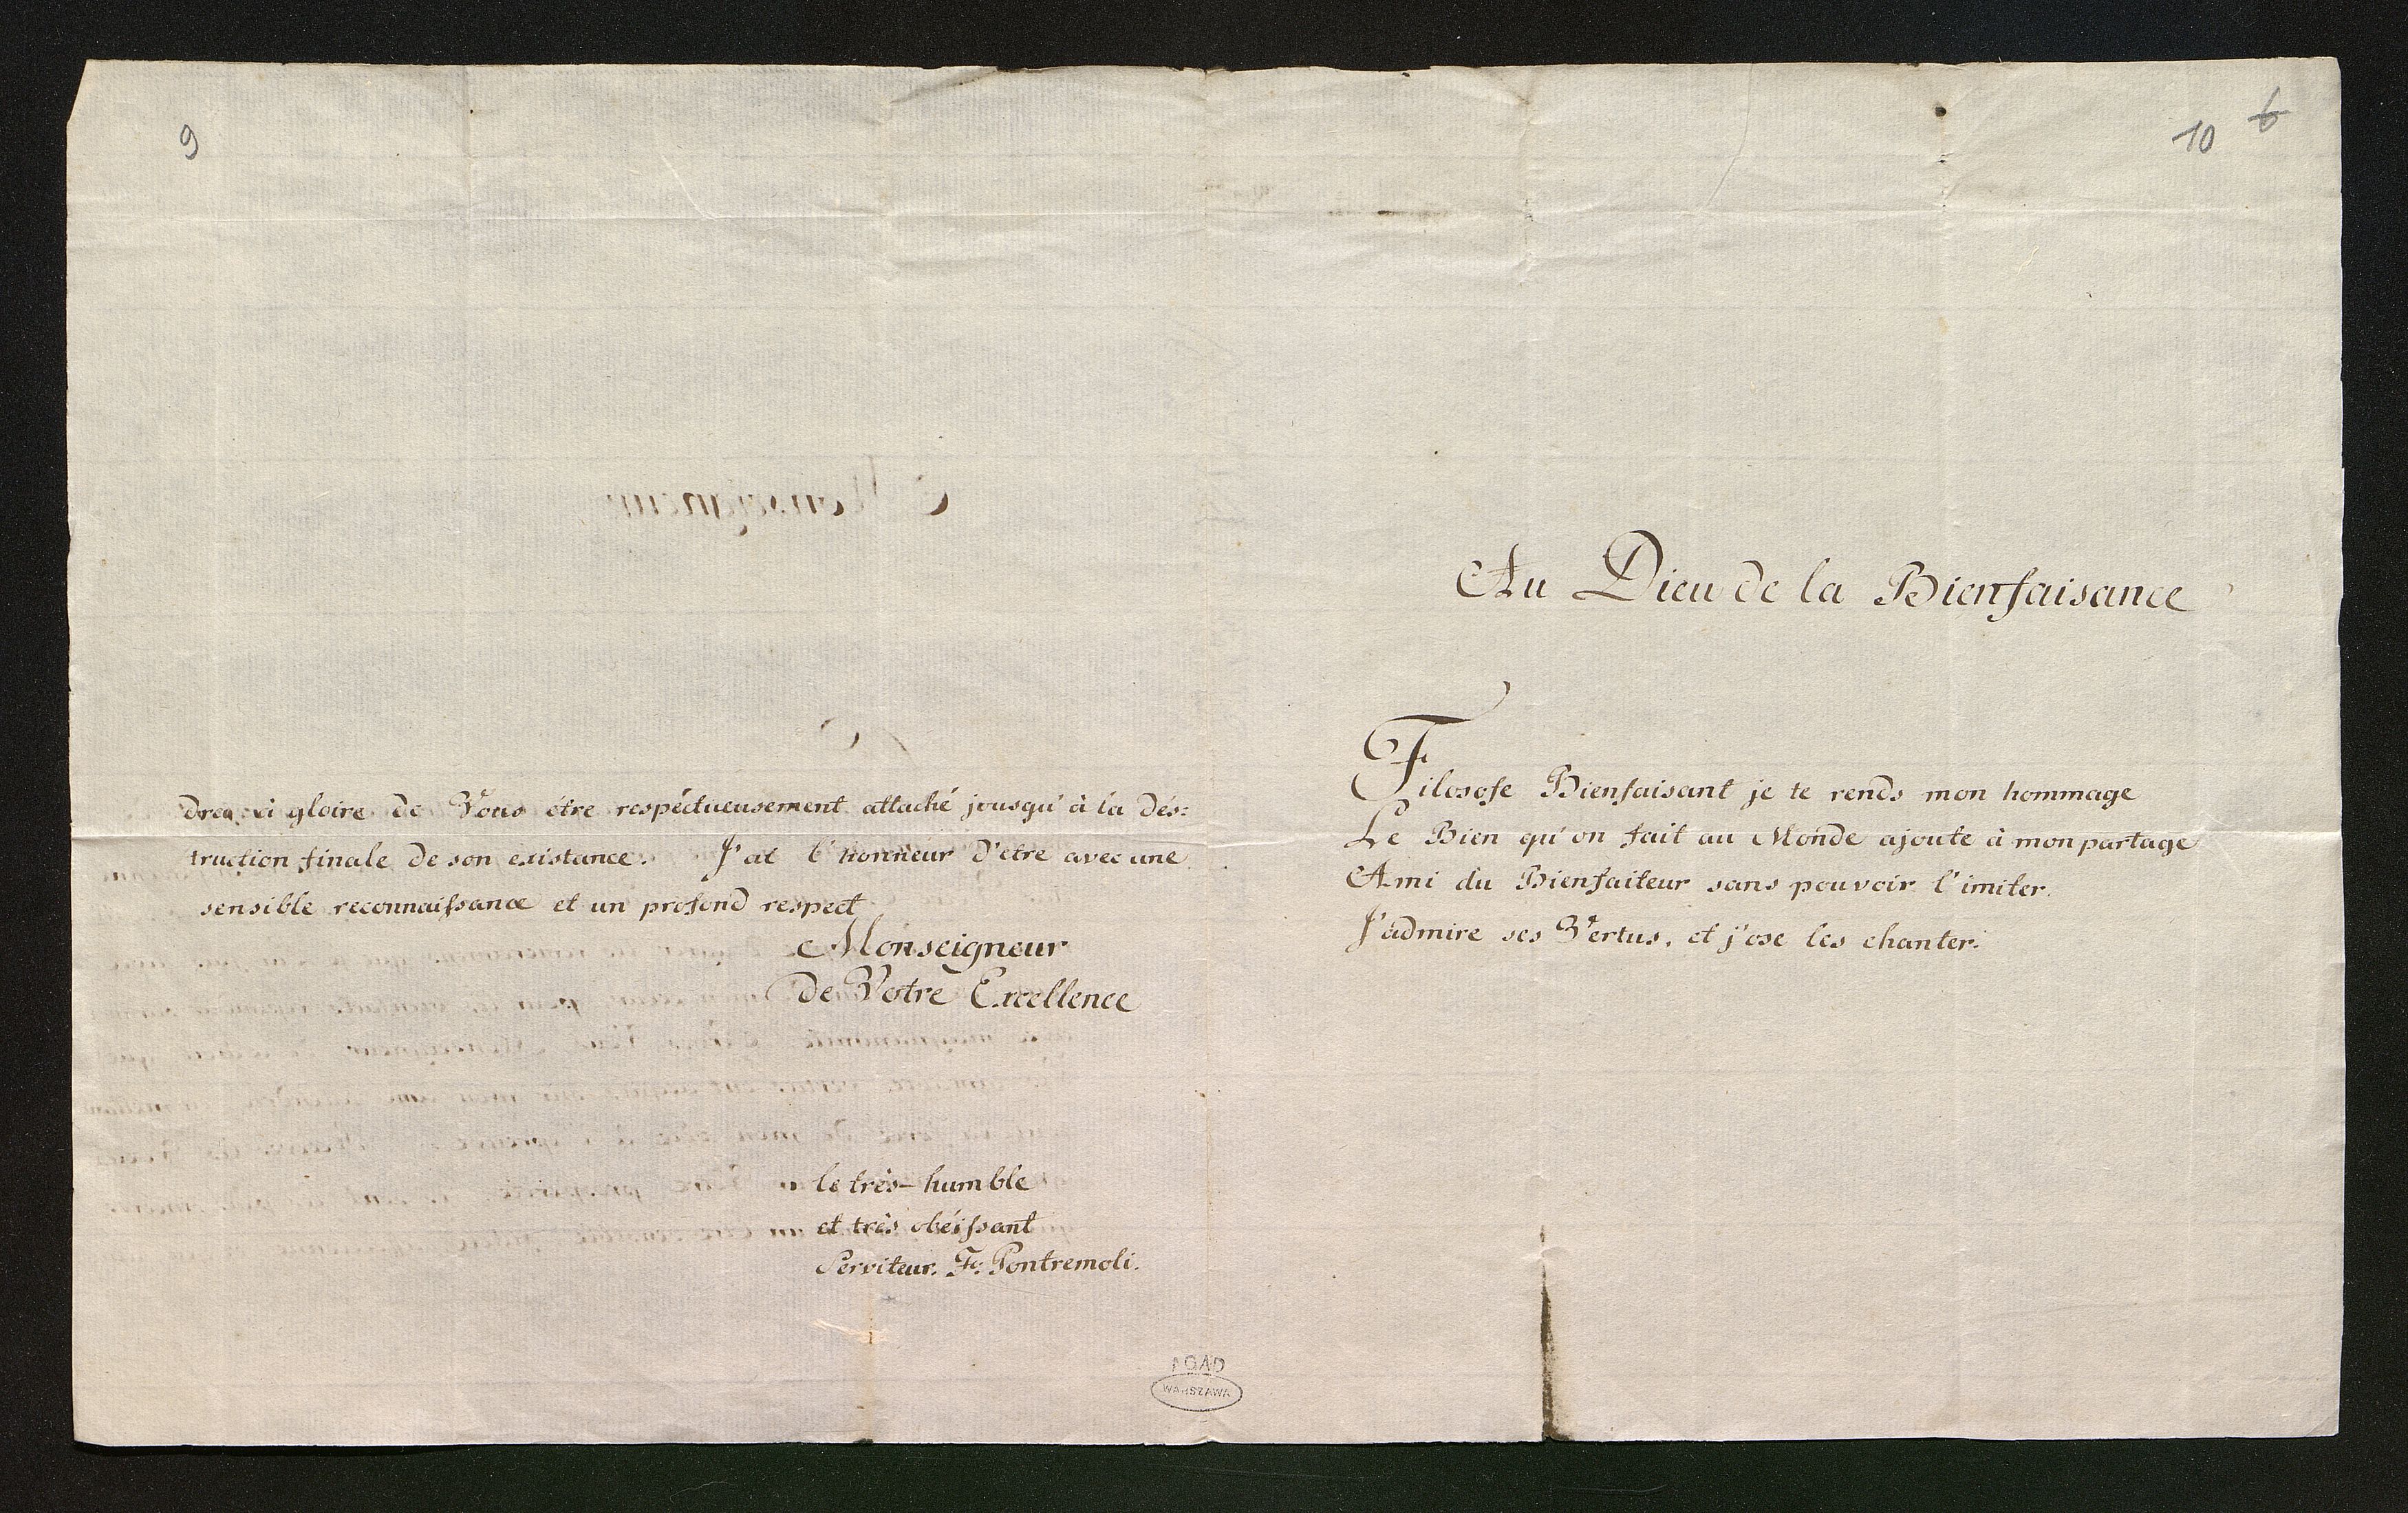 9
dra, à gloire de Vous étre respéctueusement attaché jousqu'à la dés=
truction finale de son existance. J'ai l'honneur d'etre avec une
sensible reconnaissance et un profond respect
Monseigneur
de Votre Excellence
le très-humble
et très obéissant
Serviteur. F. Pontremoli.
AGAD
WARSZAWA
10 6
Au Dieu de la Bienfaisance
Filosofe Bienfaisant je te rends mon hommage
Le Bien qu'on fait au Monde ajoute à mon partage
Ami du Bienfaiteur sans pouvoir l'imiter.
J'admire ses Vertus, et j'ose les chanter.